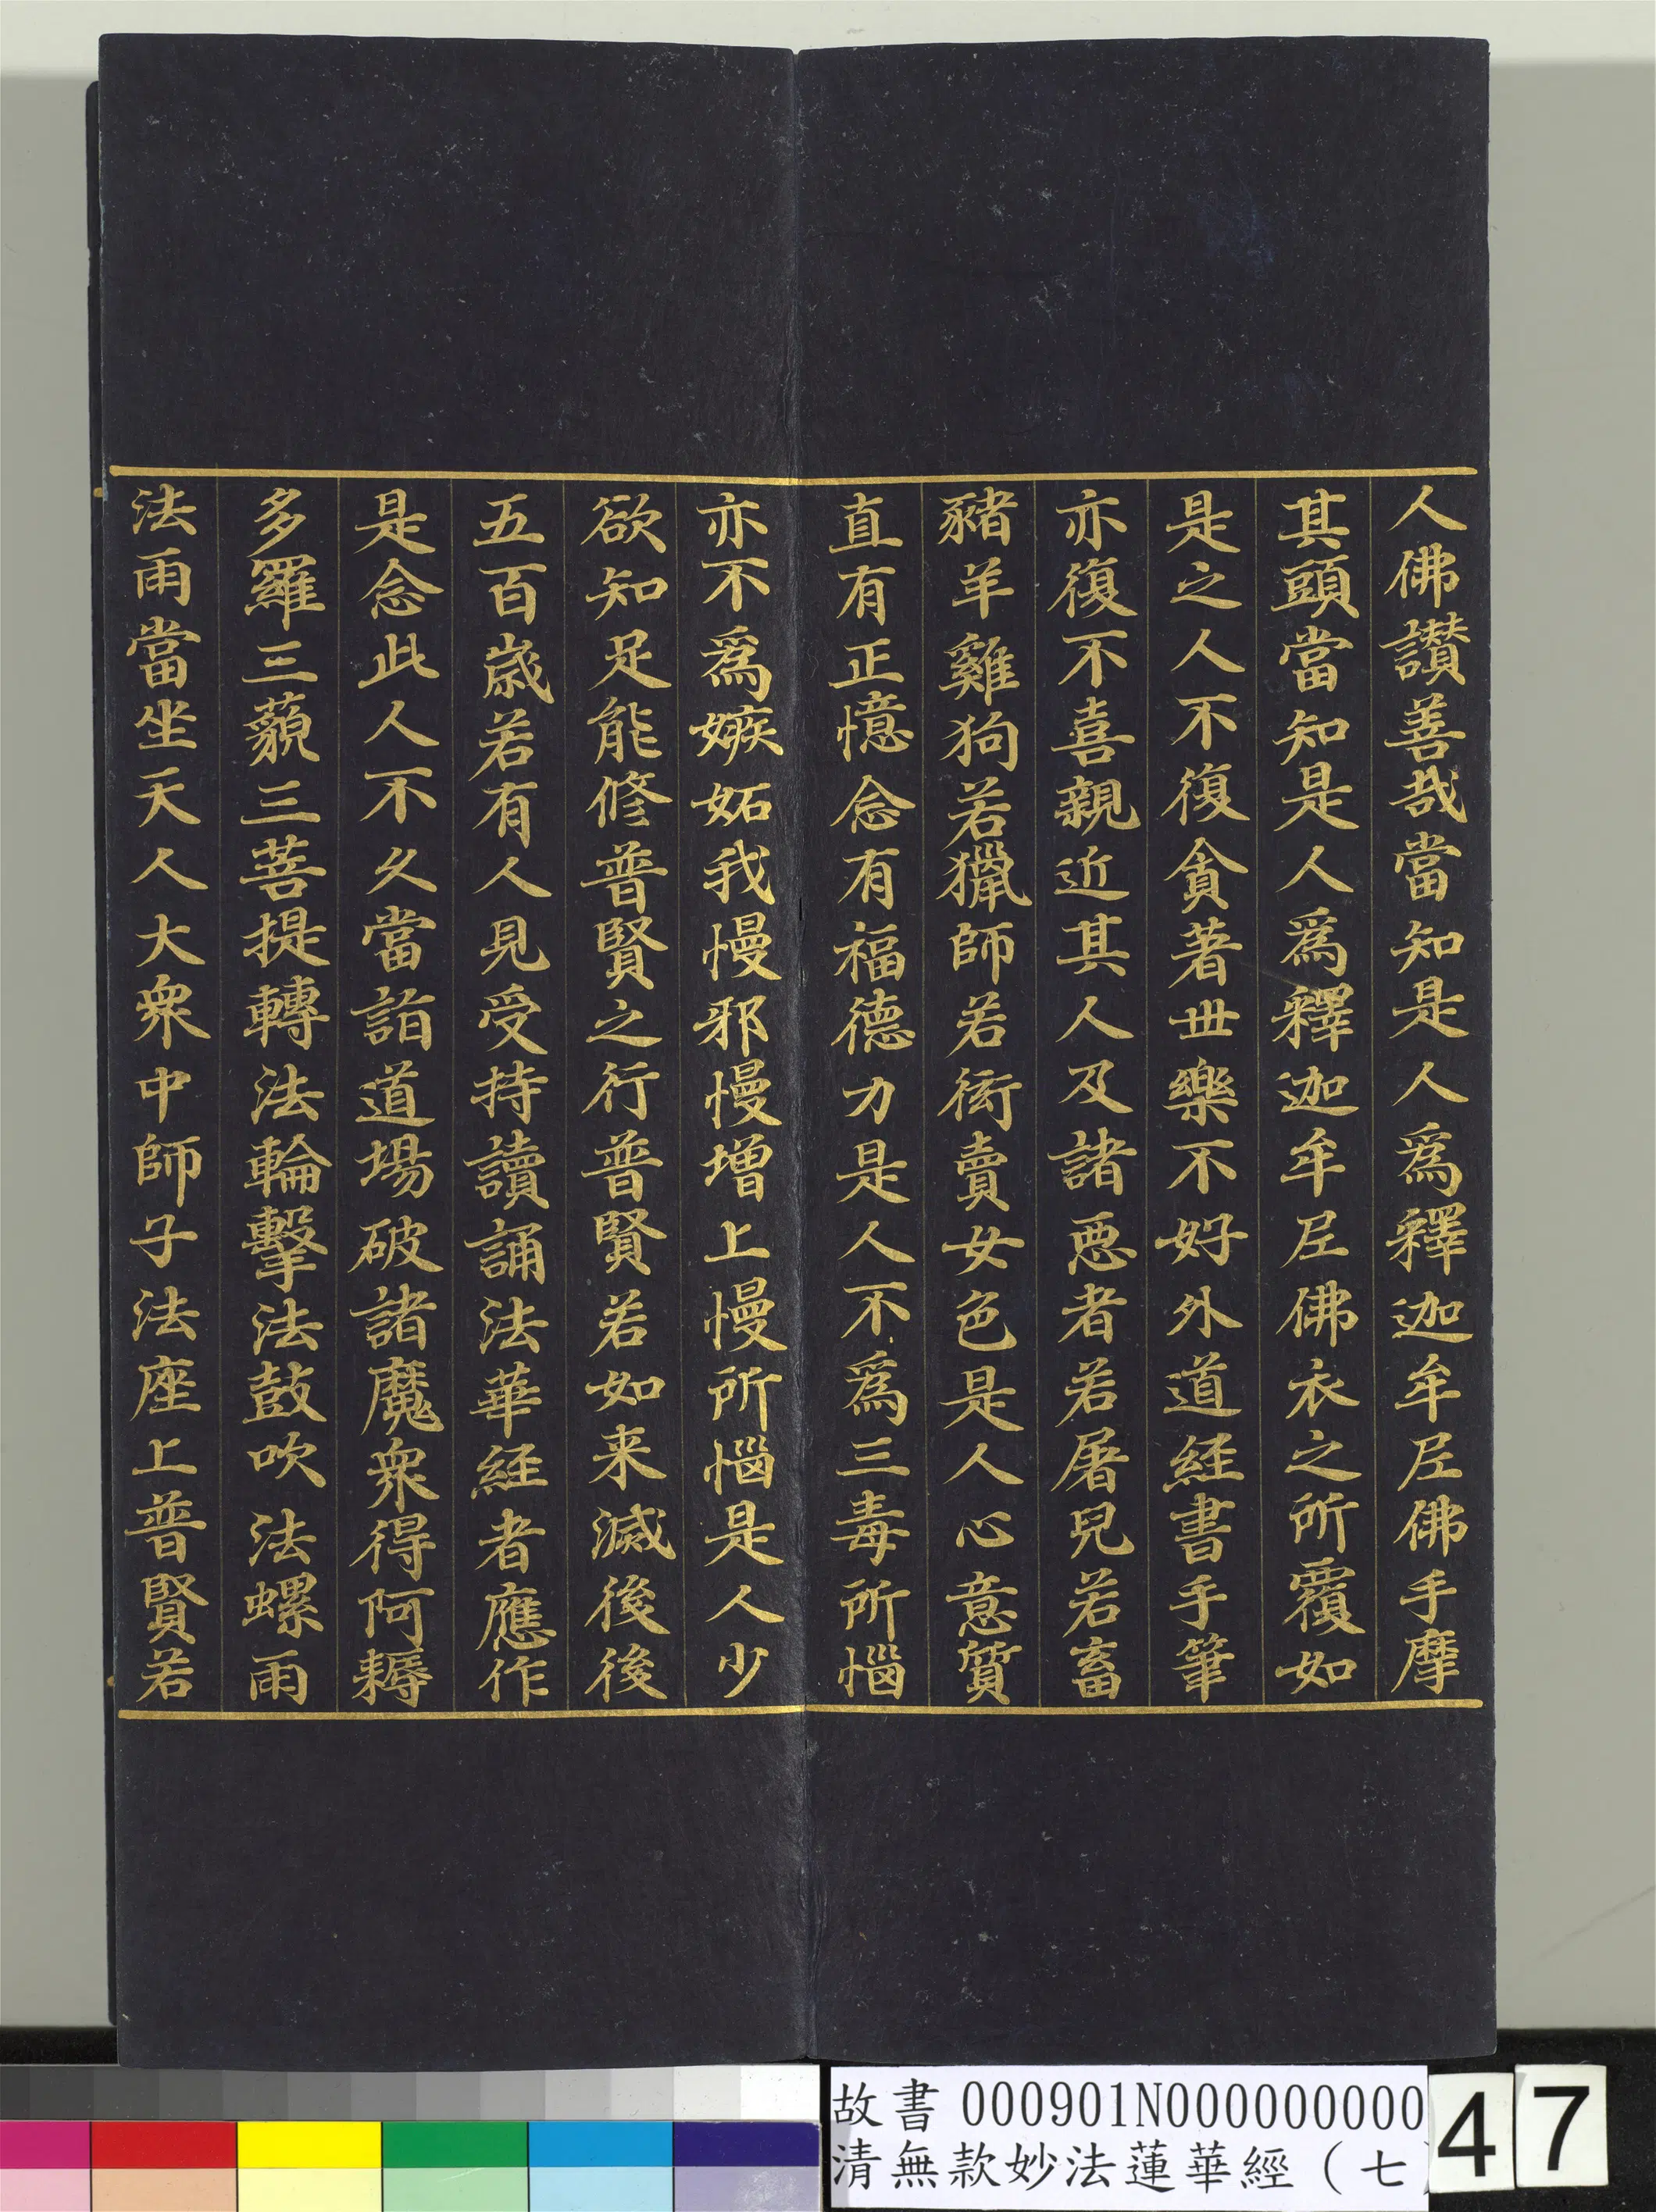 人佛讃善哉當知是人爲釋迦牟尼佛手摩
其頭當知是人爲釋迦牟尼佛衣之所覆如
是之人不復貪著世樂不好外道経書手筆
亦復不喜親近其人及諸惡者若屠兒若畜
豬羊雞狗若獵師若衒賣女色是人心意質
直有正憶念有福德力是人不爲三毒所惱
亦不爲嫉妬我慢邪慢增上慢所惱是人少
欲知足能修普賢之行普賢若如来滅後後
五百歲若有人見受持讀誦法華経者應作
是念此人不久當詣道場破諸魔衆得阿耨
多羅三藐三菩提轉法輪擊法鼓吹法螺雨
法雨當坐天人大衆中師子法座上普賢若
故書 000901N000000000
清無款妙法蓮華經（七
47